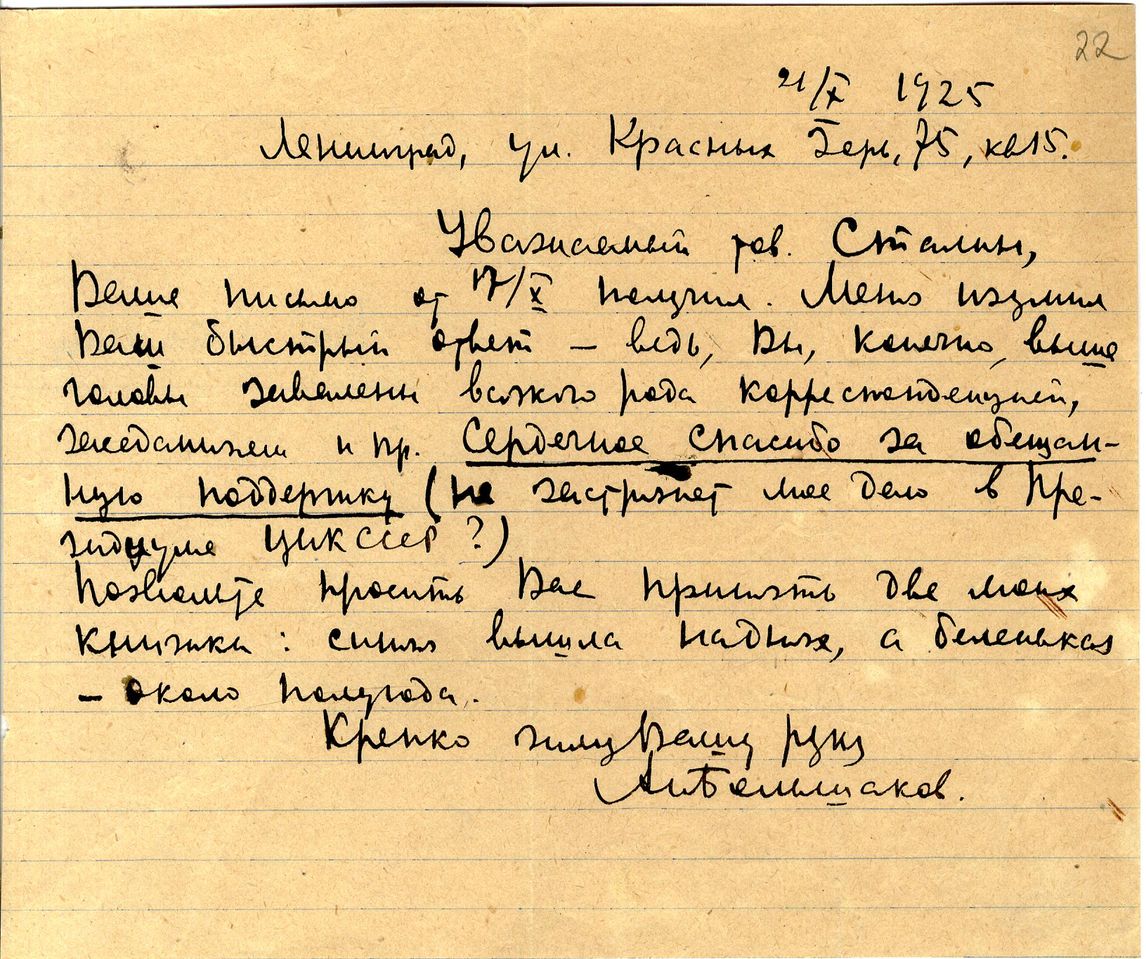 22
21/X 1925
Ленинград, ул. Красных Зорь, 75, кв 15.
Уважаемый тов. Сталин,
Ваше письмо от 17/X получил. Меня изумил
Ваш быстрый ответ – ведь, Вы, конечно, выше
головы завалены всякого рода корреспонденцией,
заседаниями и пр. Сердечное спасибо за обещан-
ную поддержку (не застрянет мое дело в Пре-
зидиуме ЦИК СССР?)
Позвольте просить Вас принять две моих
книжки: синяя вышла на днях, а беленькая
– около полугода.
Крепко жму Вашу руку
Большаков.